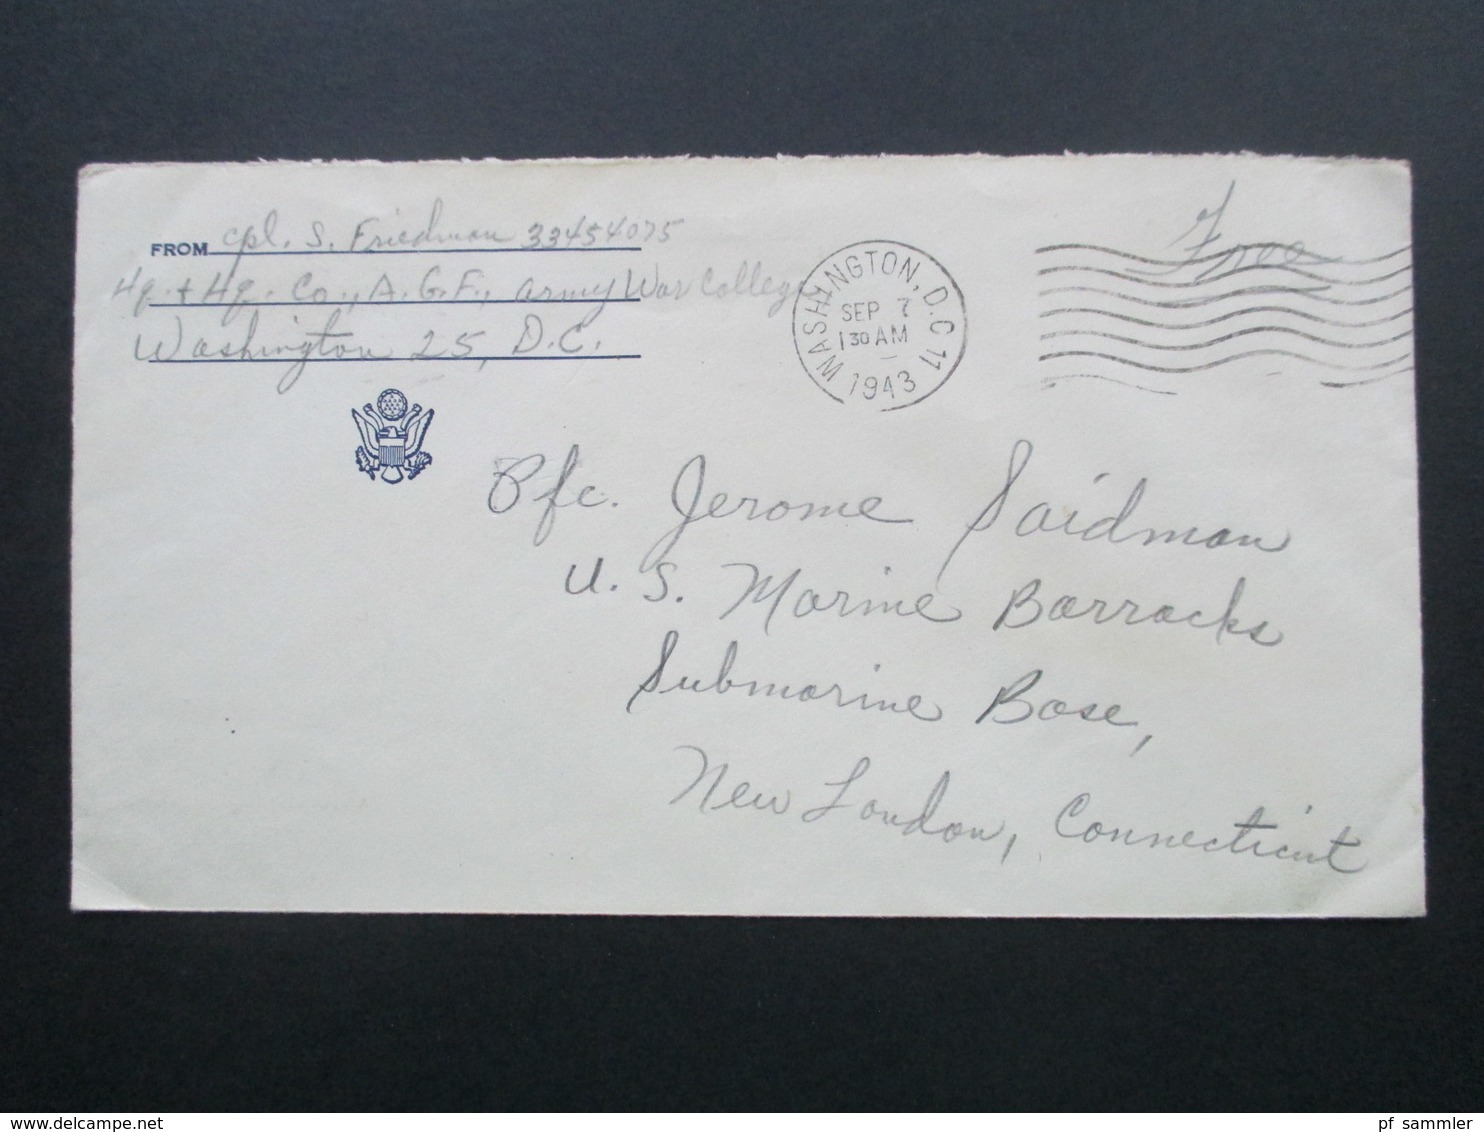 FROM Cpl. S. Friedman 33454075
Hq. + Hq. Co., A.G.F., Army War College
Washington 25, D.C.
WASHINGTON, D.C. 11
SEP 7
1 30 AM
1943
Free
Pfc. Jerome Saidman
U. S. Marine Barracks
Submarine Base,
New London, Connecticut
pf_sammler